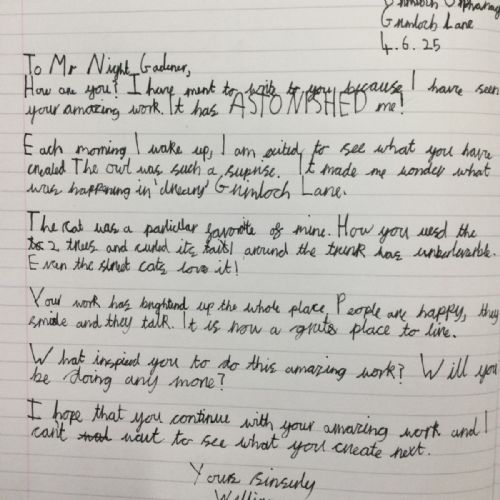 Grimloch Orphanag
Grimloch Lane
4.6.25
To Mr Night Gadener,
How are you? I have ment to write to you because I have seen
your amazing work. It has ASTONISHED me!
Each morning I wake up, I am exited to see what you have
created The owl was such a suprise. It made me wonder what
was happening in 'dreary' Grimloch Lane.
The cat was a particuler favorite of mine. How you uesd the
2 trees and curled its tail around the trunk was unbeleverble.
Even the street cats love it!
Your work has brightend up the whole place. People are happy, they
smile and they talk. It is now a grate place to live.
What inspired you to do this amazing work? Will you
be doing any more?
I hope that you continue with your amazing work and I
cant wait to see what you create next.
Yours sinserly